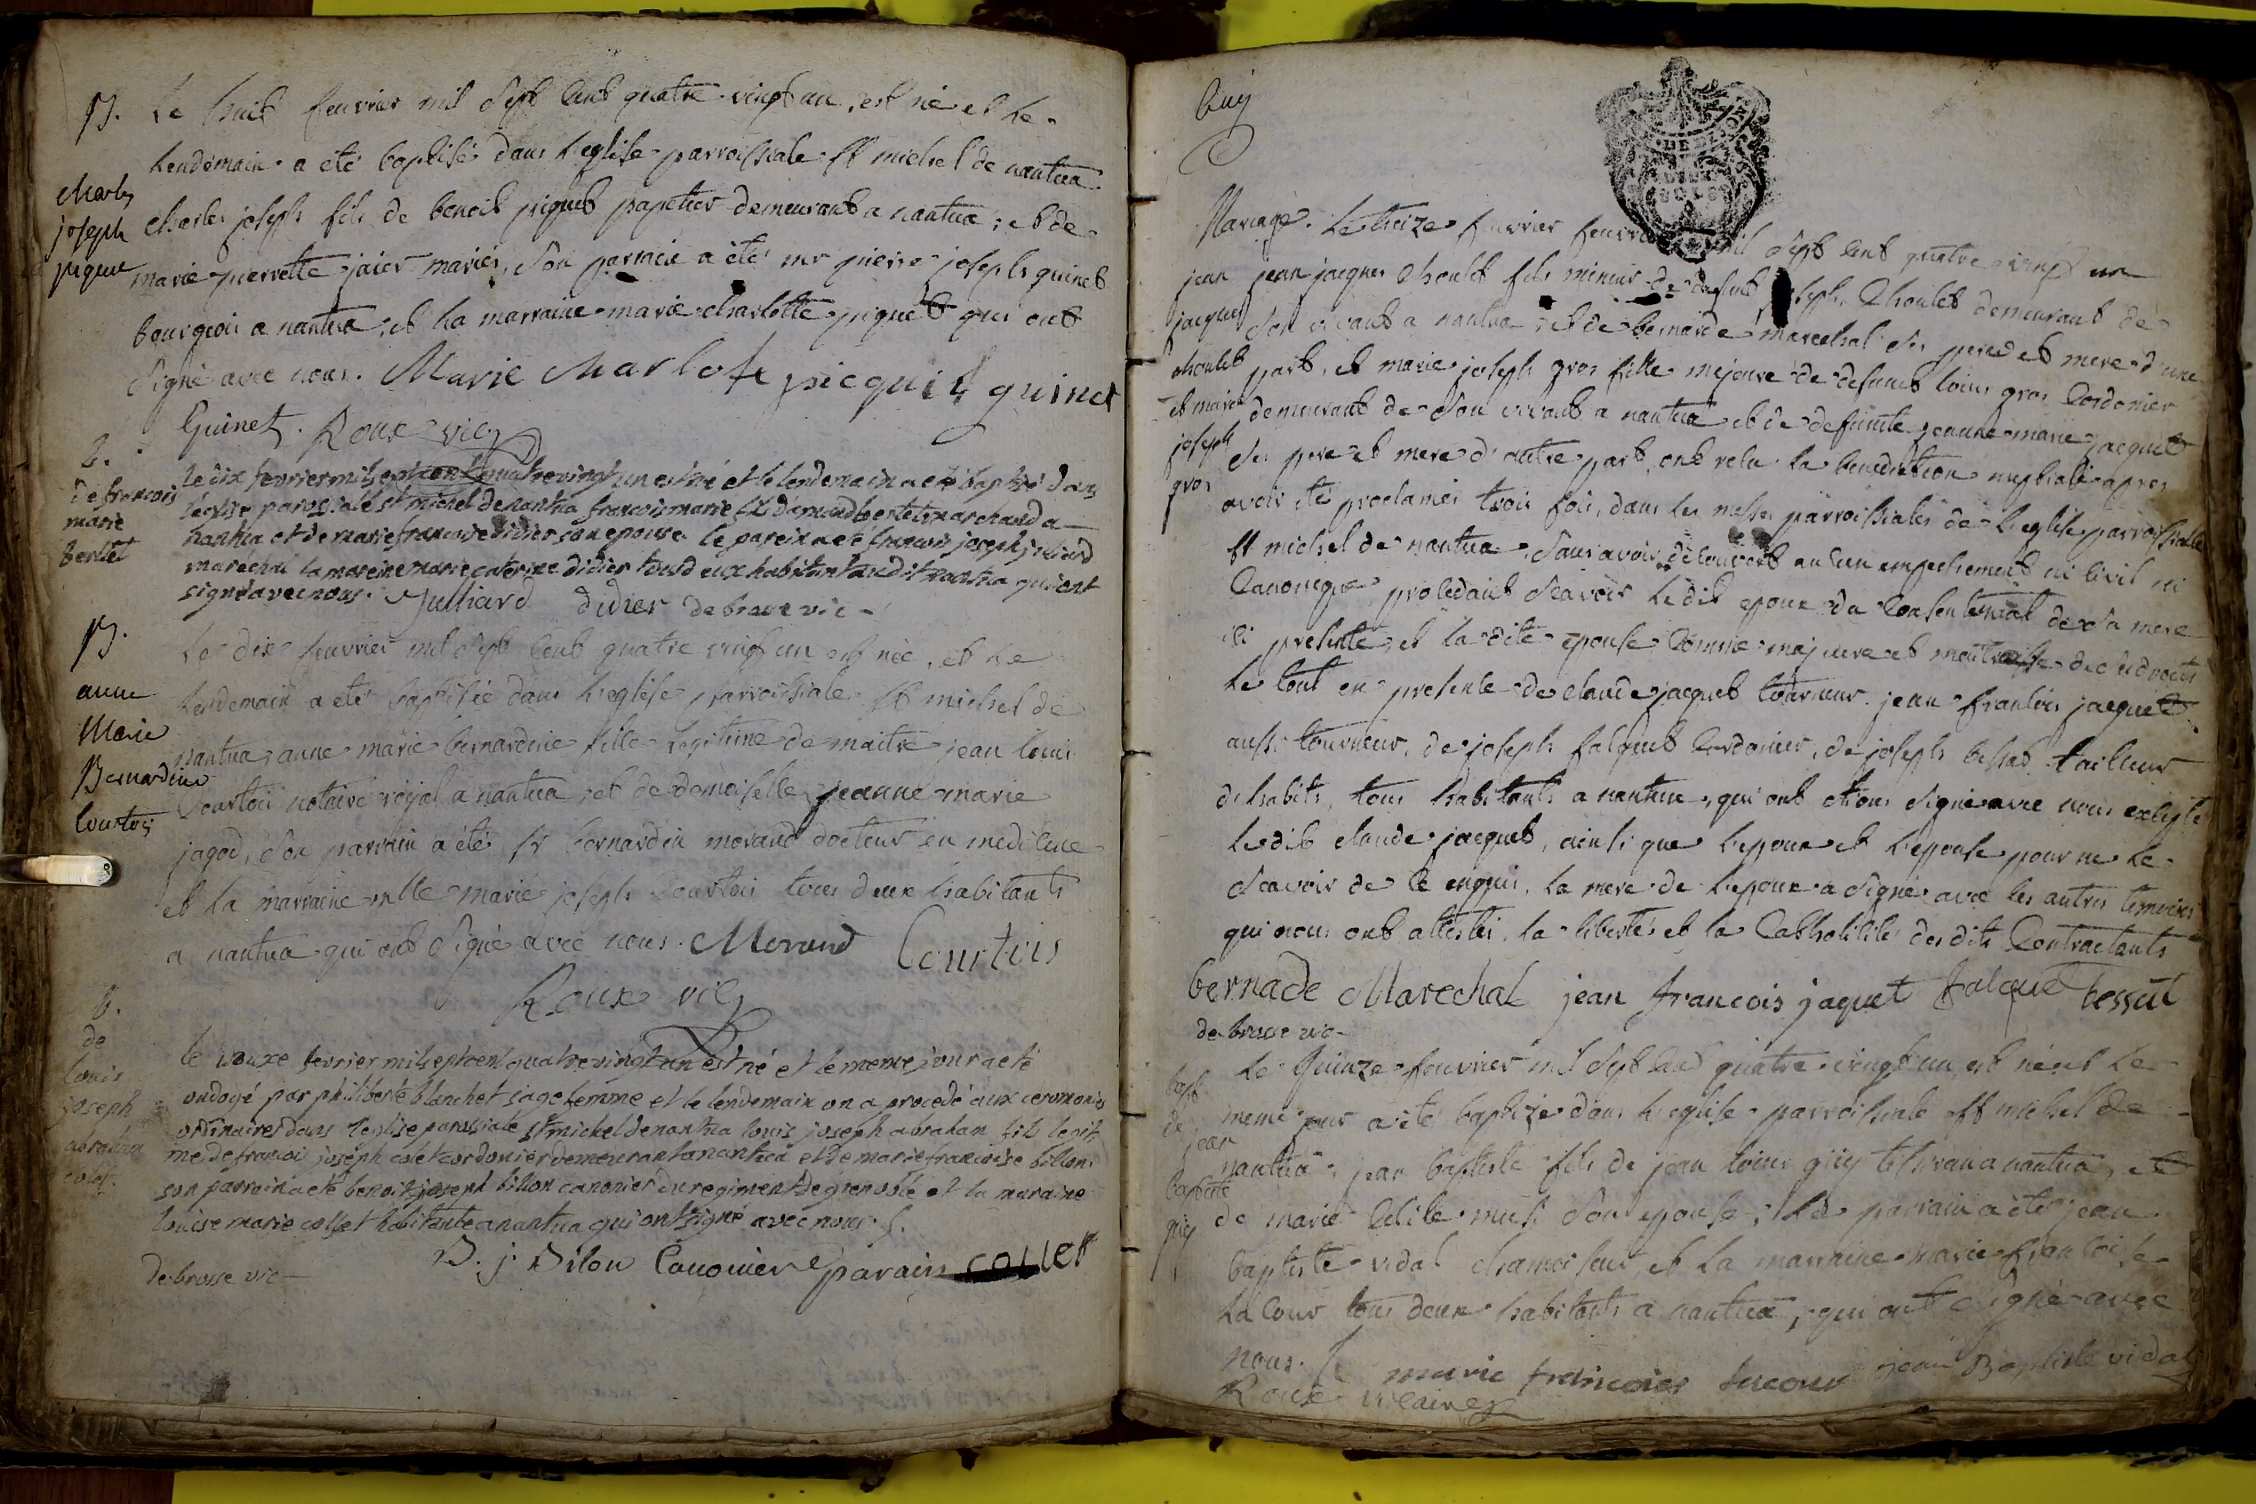 B. Le huit feuvrier mil sept cent quatre-vingt un, est né et le
lendemain a été baptisé dans l'eglise parroissiale st michel de nantua
Charles
joseph
piquet
charles joseph fils de benoit piquet papetier demeurant a nantua ; et de
marie pierrette jaier mariés, son parrain a été mr pierre joseph guinet
bourgeois a nantua, et la marraine marie charlotte piquet qui ont
signé avec nous. Marie Charlote picquet guinet
Guinet. Roux vic.
B.
de francois
marie
bertet
Le dix fevrier mil sept cent quatre vingt un est né et le lendemain a été baptisé dans
l'eglise parossiale st michel de nantua francois marie fils d'amand bertet marchand a
nantua et de marie francoise didier son epouse le parein a été francois joseph juliard
marechal la mareine marie caterine didier tous deux habitant audit nantua qui ont
signé avec nous. Julliard didier debrosse vic
B.
anne
Marie
Bernardine
Courtois
Le dix feuvrier mil sept cent quatre vingt un est née, et le
lendemain a été baptisée dans l'eglise parroissiale st michel de
nantua anne marie bernardine fille legitime de maitre jean louis
Courtois notaire royal a nantua, et de demoiselle jeanne marie
jagod, son parrain a été sr bernardin morand docteur en medecine
et la marraine mlle marie joseph Courtois tous deux habitants
a nantua qui ont signé avec nous. Morand Courtois
Roux vic
B.
de
louis
joseph
abraham
colet
le douze fevrier mil sept cent quatre vingt un est né et le meme jour a eté
ondoyé par philiberte blanchet sage femme et le lendemain on a procedé aux ceremonies
ordinaires dans l'eglise parossiale st michel de nantua louis joseph abraham fils legiti
me de francois joseph colet cordonier demeurant a nantua et de marie francoise billon
son parrein a eté benoit joseph billon canonier du regiment de grenoble et la mareine
louise marie collet habitante a nantua qui ont signé avec nous.
B. j. Bilon Canonier parain collet
debrosse vic
Mariage. Le treize feuvrier feuvrier mil sept cent quatre vingt un
jean
jacques
choulet
et marie
joseph
gros
jean jacques Choulet fils mineur de defunt joseph Choulet demeurant de
son vivant a nantua, et de bernarde marechal ses pere et mere d'une
part, et marie joseph gros fille mejeure de defunct louis gros Cordonier
demeurant de son vivant a nantua et de defunte jeanne marie jacquet
ses pere et mere d'autre part, ont recu la benediction nuptiale apres
avoir été proclamés trois fois, dans les messes parroissiales de l'eglise parroissialle
st michel de nantua, sans avoir decouvert aucun empechement ni civil ni
Canonique procedant scavoir le dit epoux du Consentement de sa mere
ici presente, et la dite epouse comme majeure et maitresse de ses droits
le tout en presence de claude jacquet tourneur. jean francois jacquet
aussi tourneur, de joseph falquet Cordonier, de joseph bessat tailleur
d'habits, tous habitants a nantua, qui ont signé avec nous excepté
ledit claude jacquet, ainsi que l'epoux et l'epouse pour ne le
scavoir de ce enquis, la mere de l'epoux a signé avec les autres temoins
qui nous ont attestés, la liberté et la Catholicité desdits Contractants
bernade Marechal jean francois jaquet falque bessat
debrosse vic
bapt
de
jean
baptiste
guy
Le quinze feuvrier mil sept cent quatre vingt un, est né et le
meme jour a été baptizé dans l'eglise parroissiale st michel de
nantua, jean baptiste fils de jean louis guy tisseran a nantua, et
de marie son epouse ; le parrain a été jean
baptiste vidal chamoiseur, et la marraine marie francoise
la Cour tous deux habitants a nantua, qui ont signé avec
nous. marie francoise lacour jean Baptiste vidal
Roux vicaire